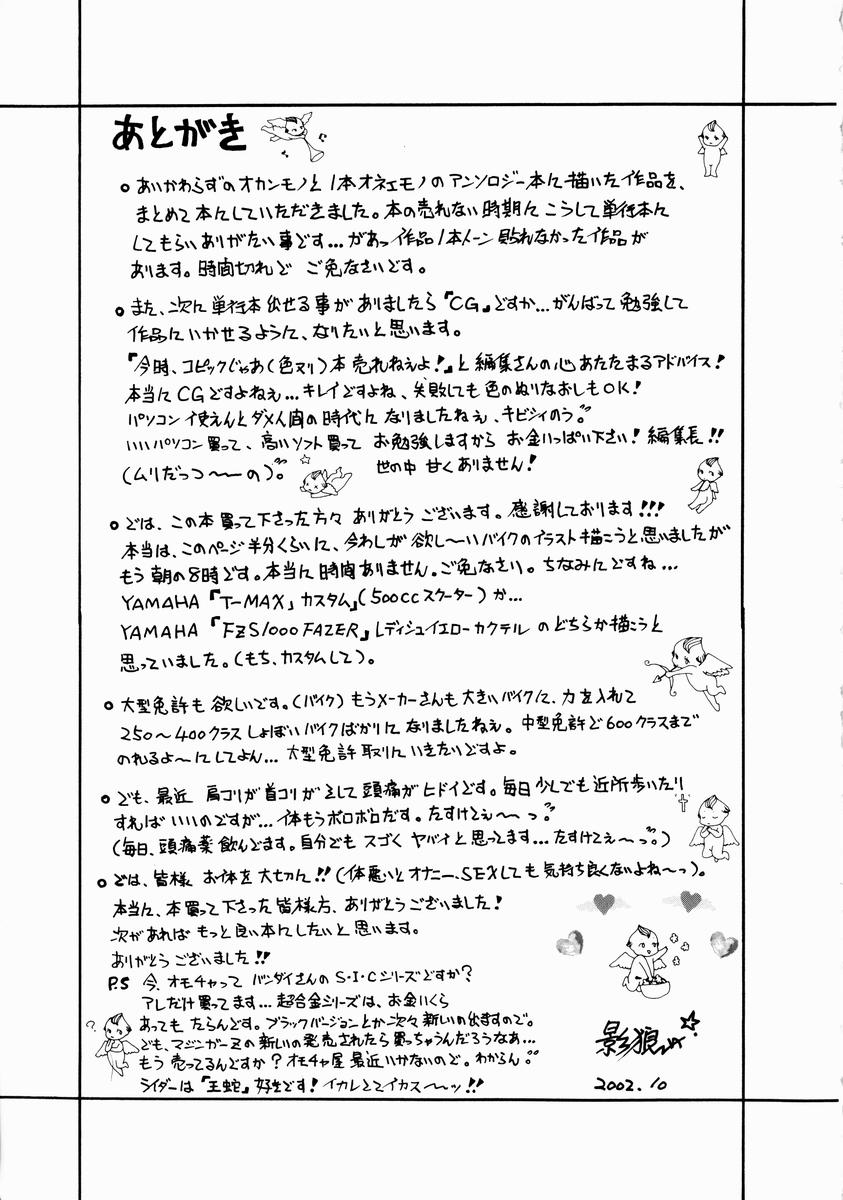 あとがき
○あいかわらずのオカンモノと1本オネエモノのアンソロジー本に描いた作品を、
まとめて本にしていただきました。本の売れない時期にこうして単行本に
してもらいありがたい事です…があっ作品1本トーン貼れなかった作品が
あります。時間切れで ご免なさいです。
○また、次に単行本出せる事がありましたら『CG』ですか…がんばって勉強して
作品にいかせるように、なりたいと思います。
『今時、コピックじゃあ(色ヌリ)本売れねぇよ!』と編集さんの心あたたまるアドバイス!
本当にCGですよねぇ…キレイですよね、失敗しても色のぬりなおしもOK!
パソコン使えんとダメ人間の時代になりましたねぇ、キビシィのう。
いいパソコン買って、高いソフト買って お勉強しますから お金いっぱい下さい!編集長!!
(ムリだっつ〜〜の)。 世の中 甘くありません!
○では、この本買って下さった方々 ありがとうございます。感謝しております!!!
本当は、このページ半分くらいに、今わしが欲し〜いバイクのイラスト描こうと思いましたが
もう朝の8時です。本当に時間ありません。ご免なさい。ちなみにですね…
YAMAHA『T-MAX』カスタム』(500ccスクーター)か…
YAMAHA『FZS1000FAZER』レディシュイエローカクテル のどちらか描こうと
思っていました。(もち、カスタムして)。
○大型免許も欲しいです。(バイク)もうメーカーさんも大きいバイクに、力を入れて
250〜400クラスしょぼいバイクばかりになりましたねぇ。中型免許で600クラスまで
のれるよ〜にしてよん…大型免許取りにいきたいですよ。
○でも、最近 肩コリが首コリがそして頭痛がヒドイです。毎日少しでも近所歩いたり
すればいいのですが…体もうボロボロだす。たすけてぇ〜〜っ。
(毎日、頭痛薬飲んでます。自分でもスゴくヤバイと思ってます…たすけてぇ〜っ。)
○では、皆様 お体を大切に!!(体悪いとオナニー、SEXしても気持ち良くないよね〜っ)。
本当に、本買って下さった皆様方、ありがとうございました!
次があればもっと良い本にしたいと思います。
ありがとうございました!!
P.S 今、オモチャって バンダイさんのS・I・Cシリーズですか?
アレだけ買ってます…超合金シリーズは、お金いくら
あってもたらんです。ブラックバージョンとか次々新しいの出ますので。
でも、マジンガーZの新しいの発売されたら買っちゃうんだろうなあ…
もう売ってるんですか?オモチャ屋最近いかないので。わからん。
ライダーは『王蛇』好きです!イカレててイカス〜〜ッ!!
?
影狼
2002.10